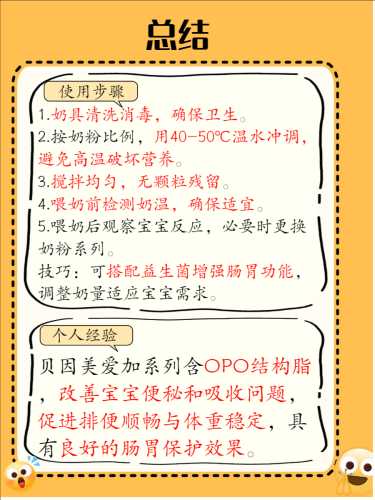 总结
使用步骤
1.奶具清洗消毒，确保卫生。
2.按奶粉比例，用40-50℃温水冲调，
避免高温破坏营养。
3.搅拌均匀，无颗粒残留。
4.喂奶前检测奶温，确保适宜。
5.喂奶后观察宝宝反应，必要时更换
奶粉系列。
技巧：可搭配益生菌增强肠胃功能，
调整奶量适应宝宝需求。
个人经验
贝因美爱加系列含OPO结构脂
，改善宝宝便秘和吸收问题，
促进排便顺畅与体重稳定，具
有良好的肠胃保护效果。